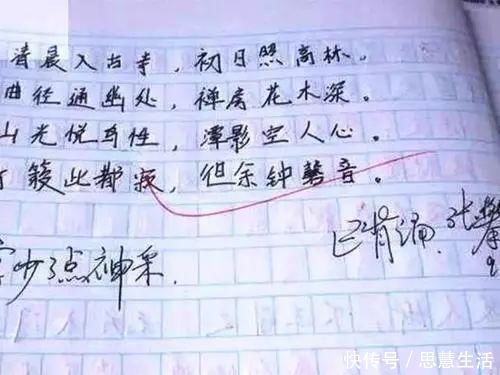 清晨入古寺，初日照高林。
曲径通幽处，禅房花木深。
山光悦鸟性，潭影空人心。
籁此都寂，但余钟磬音。
已背诵.张
少了点神采.
快传号/思慧生活